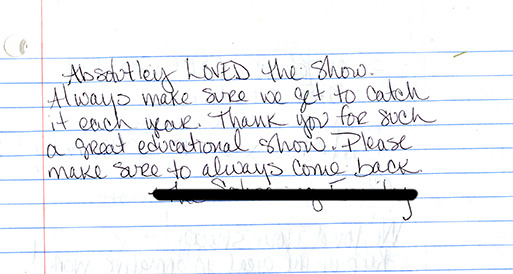 Absolutley LOVED the show.
Always make sure we get to catch
it each year. Thank you for such
a great educational show. Please
make sure to always come back.